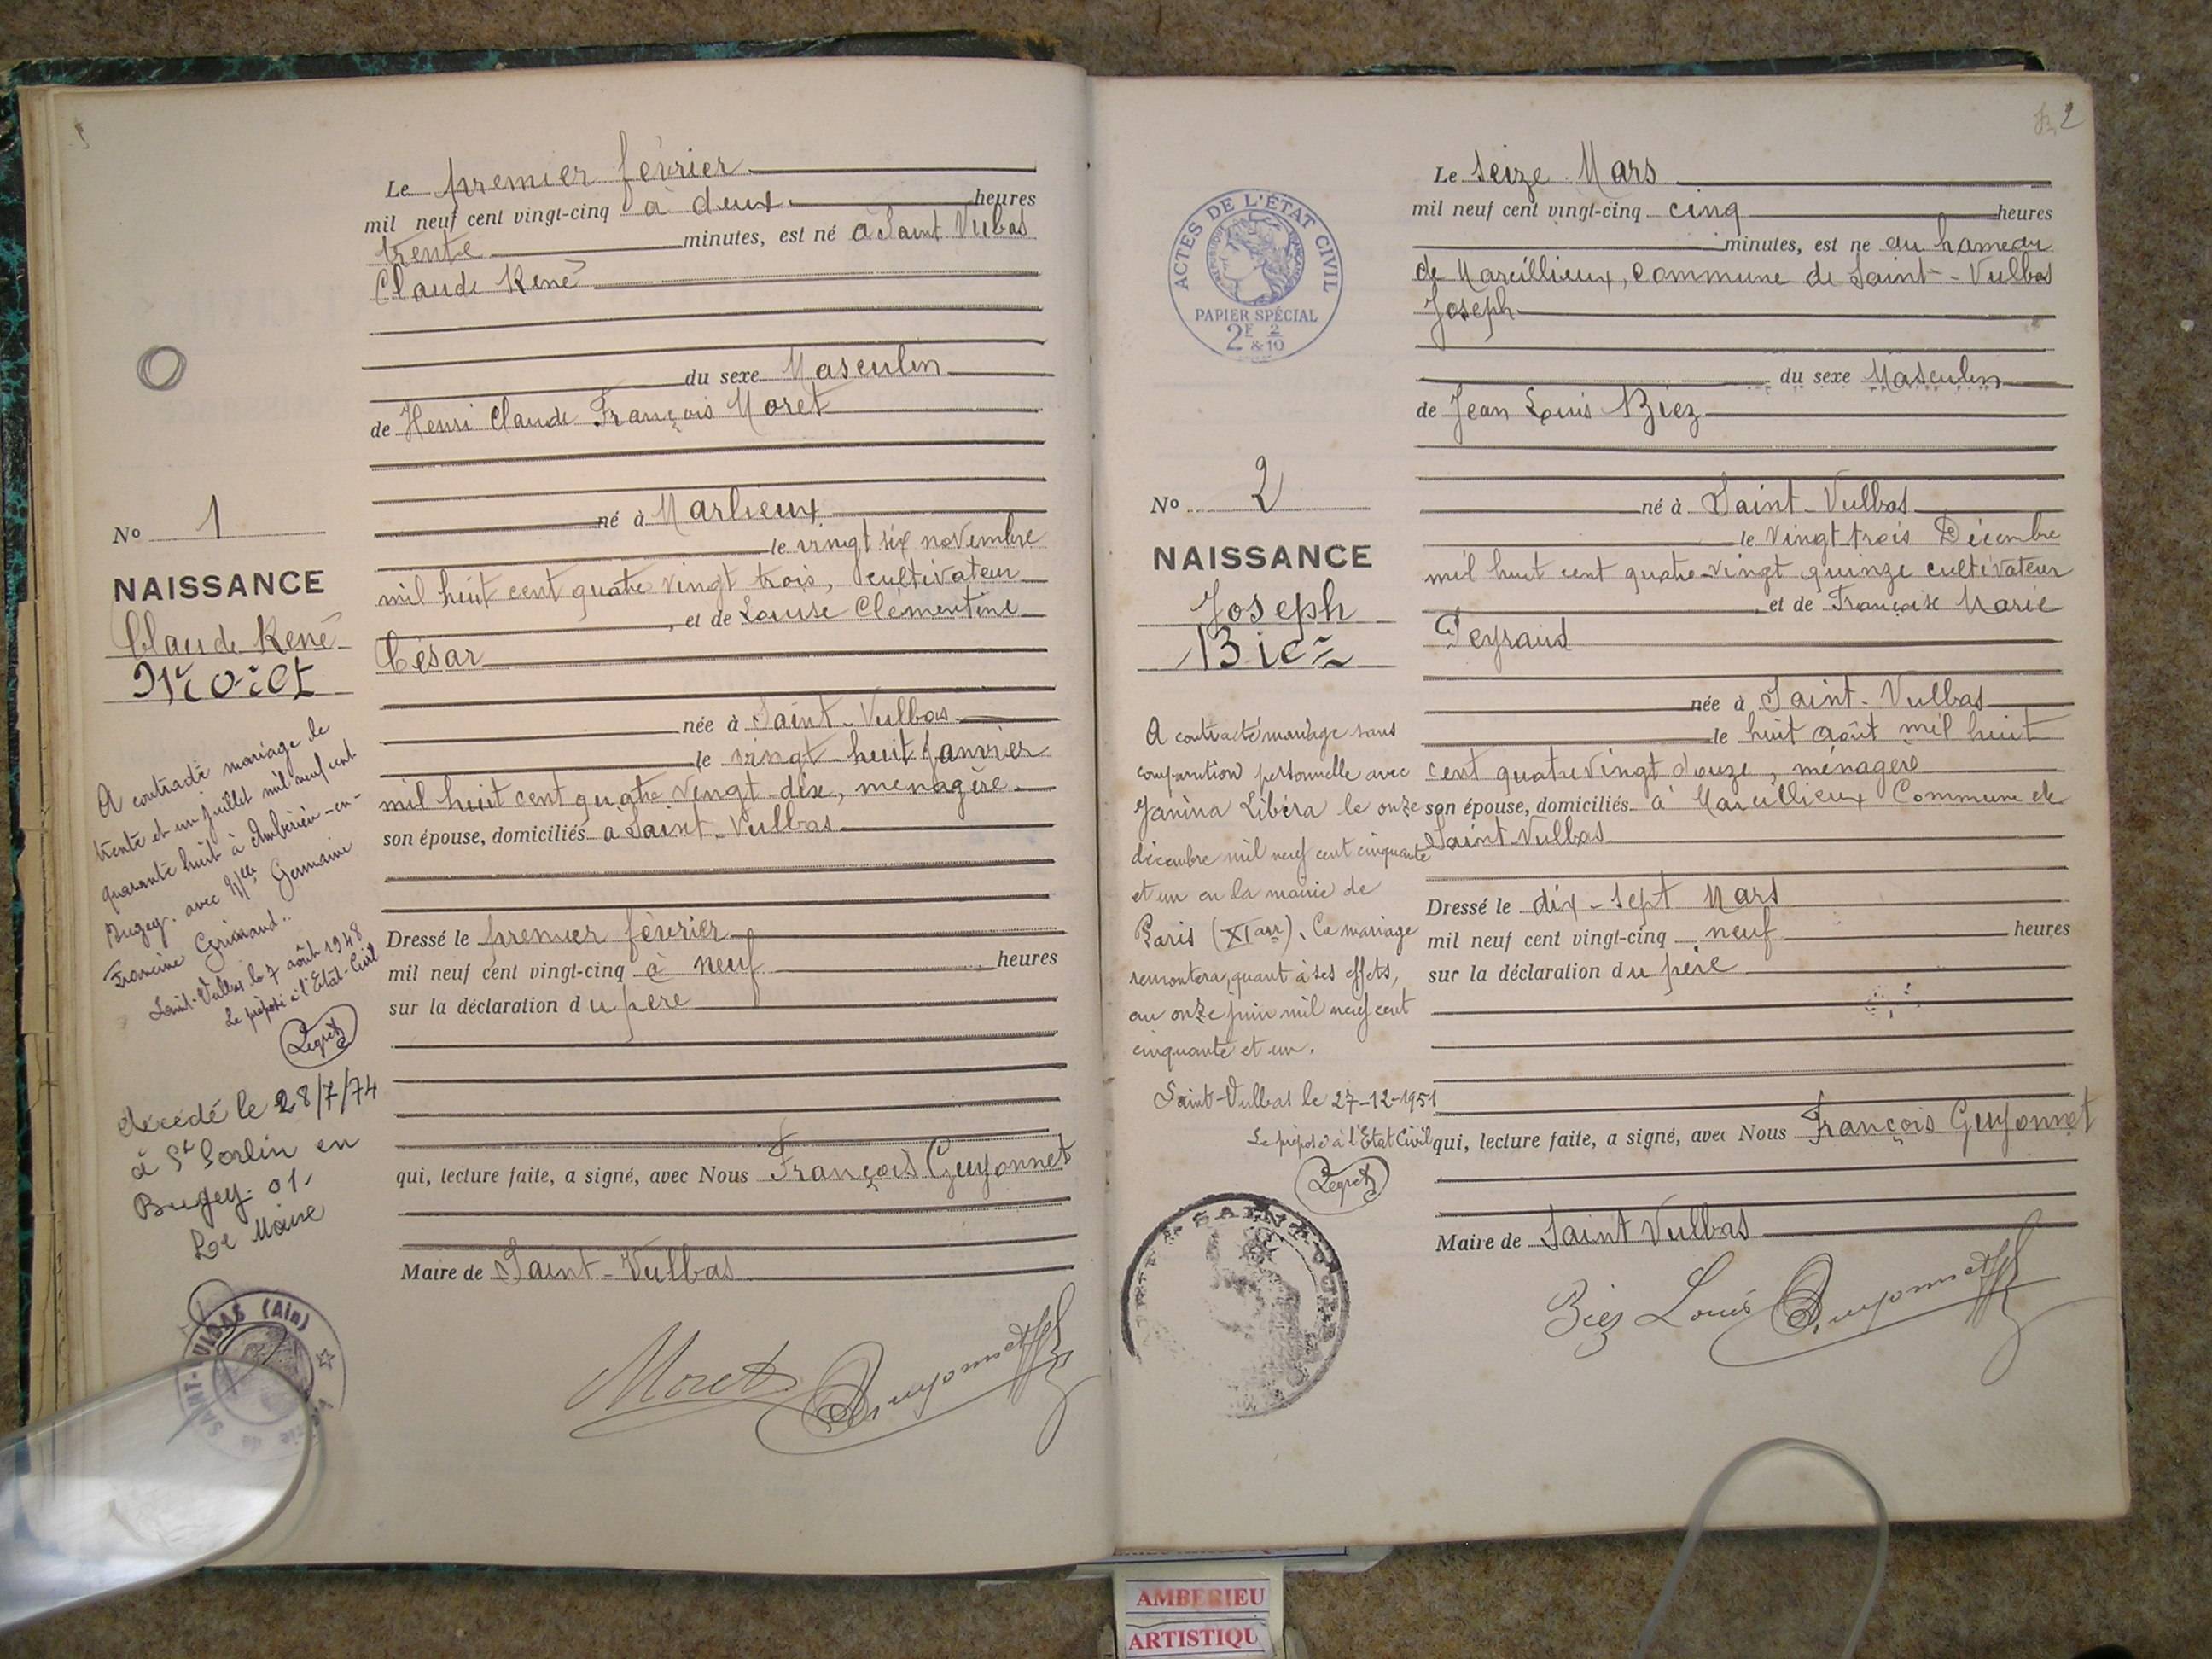 Le premier février
mil neuf cent vingt-cinq à deux heures
trente minutes, est né à Saint Vulbas
Claude René
du sexe Masculin
de Henri Claude François Moret
né à Marlieux
No 1
le vingt six novembre
NAISSANCE
mil huit cent quatre vingt trois, cultivateur
Claude René
, et de Louise Clémentine
Moret
César
née à Saint-Vulbas
le vingt-huit Janvier
mil huit cent quatre vingt-dix, ménagère
son épouse, domiciliés à Saint-Vulbas
A contracté mariage le
trente et un juillet mil neuf cent
quarante huit à Ambérieu-en-
Bugey. avec Mlle Germaine
Francine Grimand..
Saint-Vulbas le 7 août 1948
Le préposé à l'Etat-Civil
Dressé le premier février
mil neuf cent vingt-cinq à neuf heures
sur la déclaration du père
décédé le 28/7/74
à St Sorlin en
Bugey-01-
Le Maire
qui, lecture faite, a signé, avec Nous François Guyonnet
Maire de Saint-Vulbas
SAINT-VULBAS (Ain)
Moret Guyonnet
2
ACTES DE L'ÉTAT CIVIL
PAPIER SPÉCIAL
2E 2
& 10
Le seize Mars
mil neuf cent vingt-cinq cinq heures
minutes, est né au hameau
de Marcillieux, commune de Saint-Vulbas
Joseph
du sexe Masculin
de Jean Louis Biez
No 2
né à Saint-Vulbas
NAISSANCE
le vingt-trois Décembre
mil huit cent quatre-vingt quinze cultivateur
Joseph
, et de Françoise Marie
Biez
Peyraud
née à Saint-Vulbas
le huit août mil huit
cent quatre vingt douze, ménagère
son épouse, domiciliés à Marcillieux Commune de
Saint-Vulbas
A contracté mariage sans
comparution personnelle avec
Janina Libéra le onze
décembre mil neuf cent cinquante
et un en la mairie de
Paris (XI arr). Ce mariage
remontera, quant à ses effets,
au onze juin mil neuf cent
cinquante et un.
Saint-Vulbas le 27-12-1951
Le préposé à l'Etat Civil
Dressé le dix-sept Mars
mil neuf cent vingt-cinq neuf heures
sur la déclaration du père
qui, lecture faite, a signé, avec Nous François Guyonnet
Maire de Saint Vulbas
Biez Louis Guyonnet
AMBERIEU
ARTISTIQU